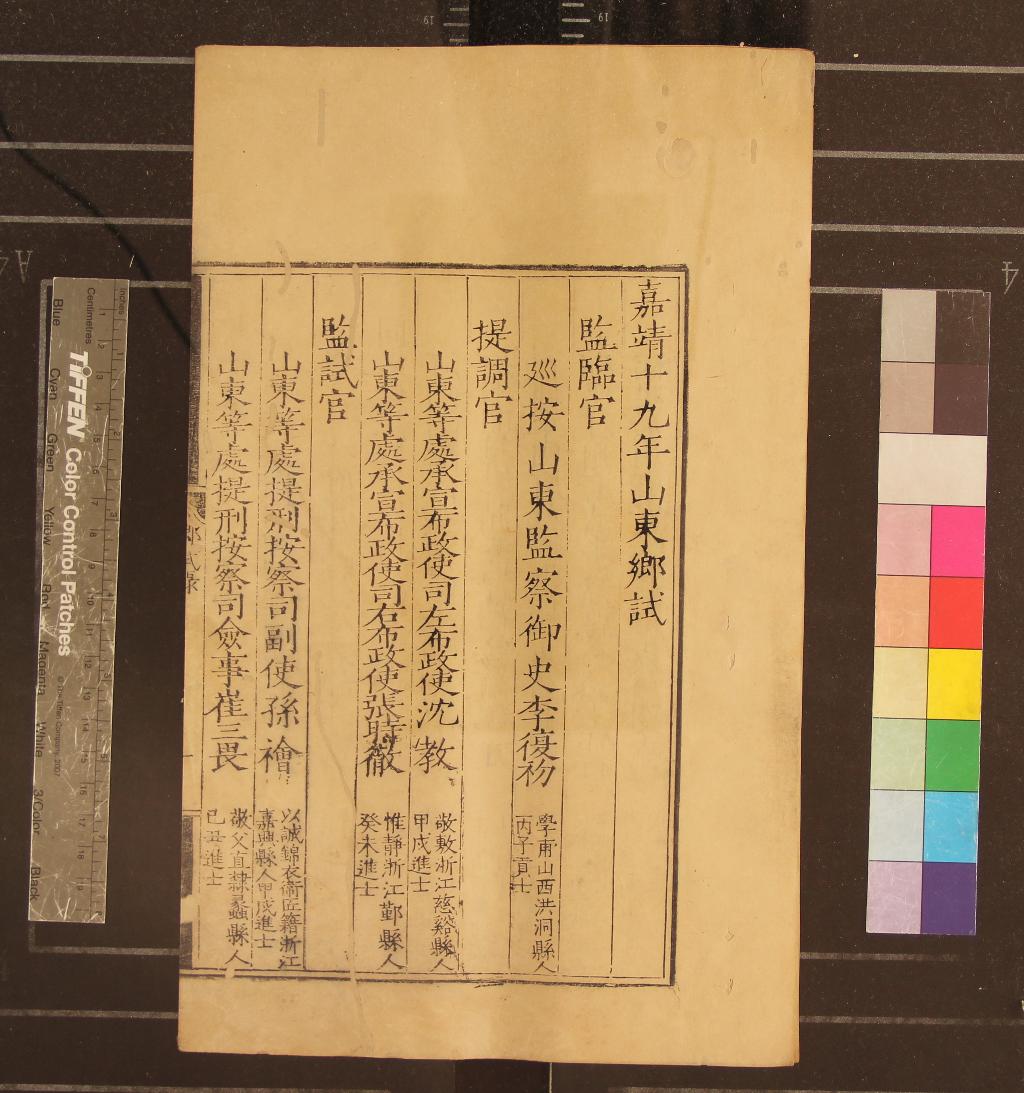 嘉靖十九年山東鄉試
監臨官
廵按山東監察御史李復初
學甫山西洪洞縣人
丙子貢士
提調官
山東等處承宣布政使司左布政使沈教
敬敷浙江慈谿縣人
甲戌進士
山東等處承宣布政使司右布政使張時徹
惟靜浙江鄞縣人
癸未進士
監試官
山東等處提刑按察司副使孫襘
以誠錦衣衛匠籍浙江
嘉興縣人甲戌進士
山東等處提刑按察司僉事崔三畏
敬父直隸蠡縣人
己丑進士
鄉試錄
TIFFEN Color Control Patches
© The Tiffen Company, 2007
Inches
Centimetres
Blue Cyan Green Yellow Red Magenta White 3/Color Black
A4
19
19